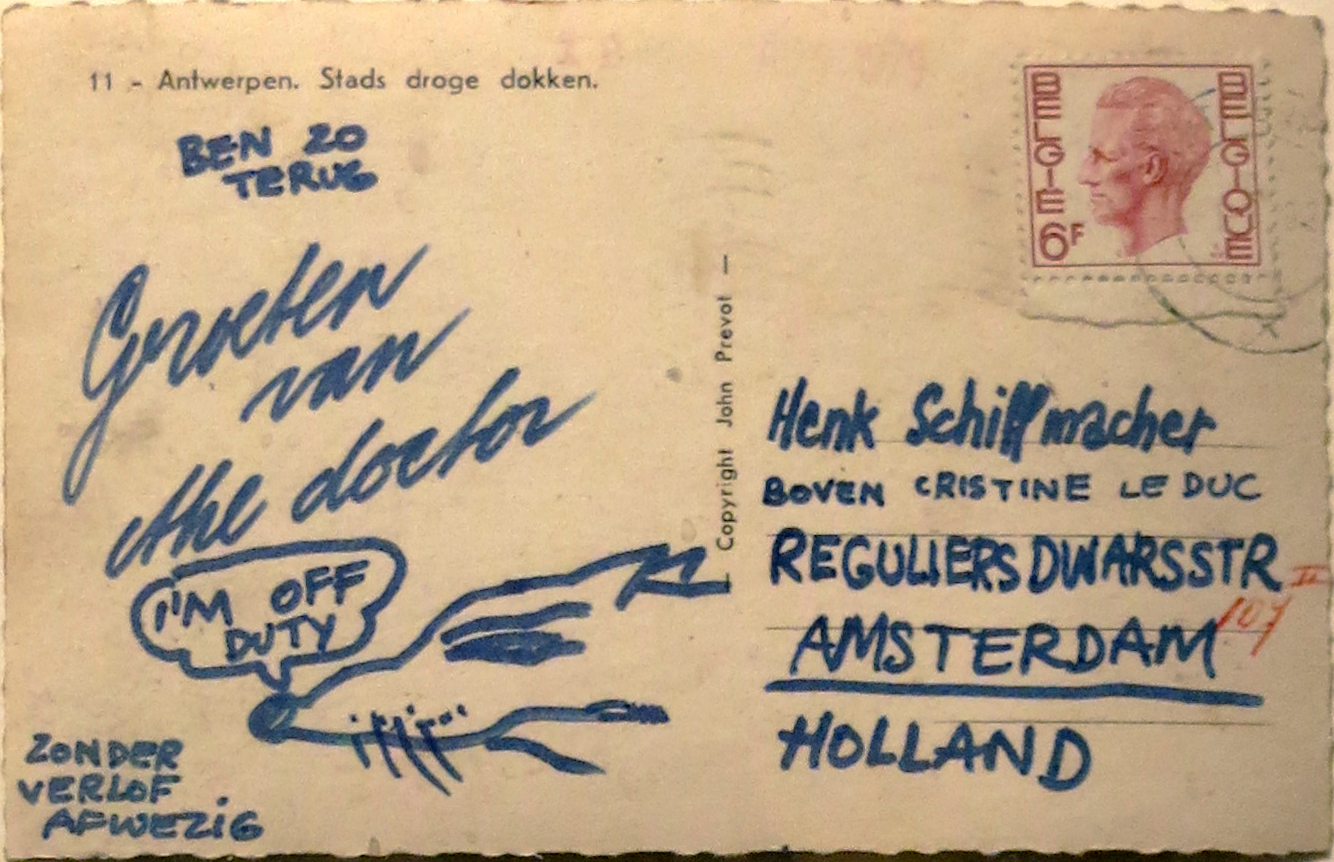 11 - Antwerpen. Stads droge dokken.
BEN ZO
TERUG
Groeten
van
the doctor
I'M OFF
DUTY
ZONDER
VERLOF
AFWEZIG
Copyright John Prevot —
BELGIE
BELGIQUE
6F
Henk Schiffmacher
BOVEN CRISTINE LE DUC
REGULIERSDWARSSTR II
107
AMSTERDAM
HOLLAND